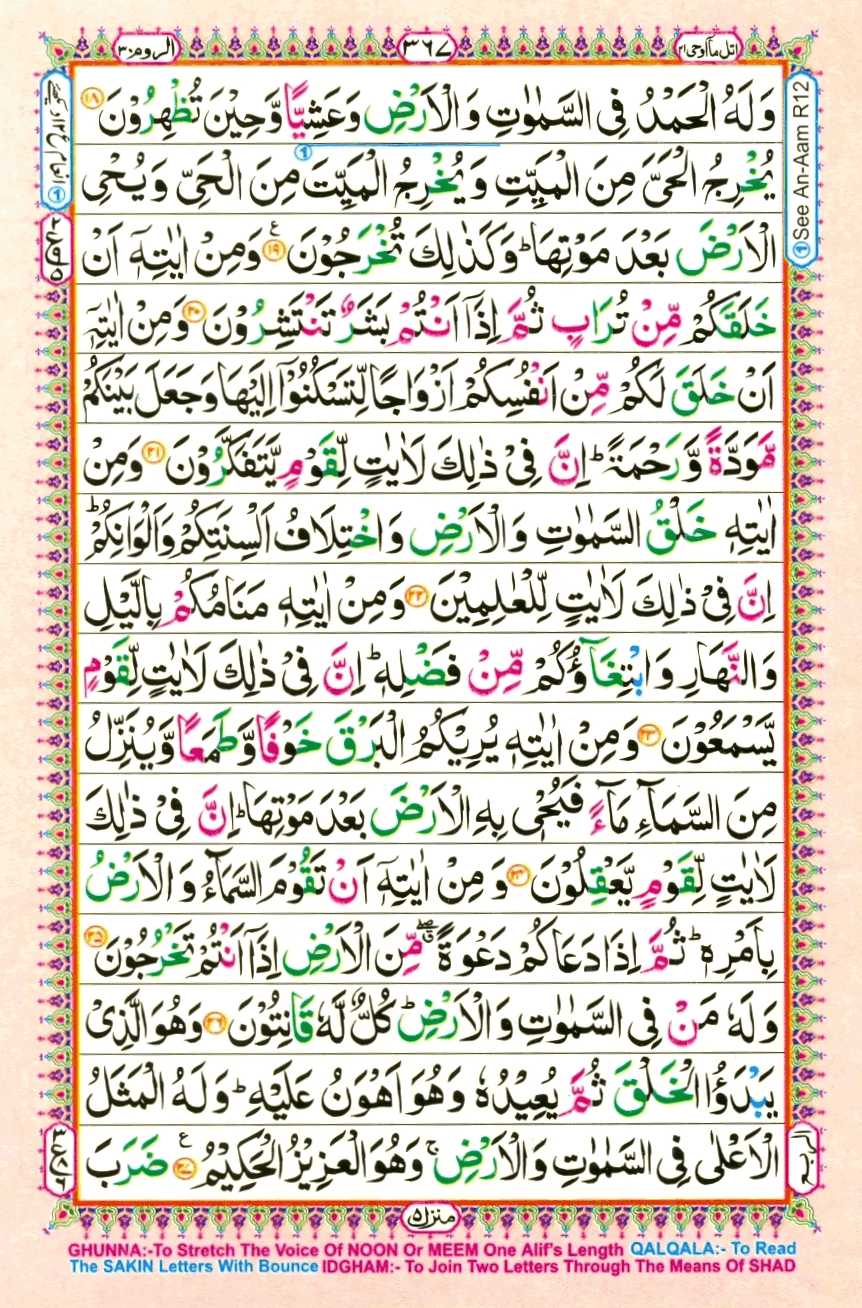 اتل ماآ اوحی ۲۱
۳۶۷
الروم ۳۰
وَلَهُ الْحَمْدُ فِی السَّمٰوٰتِ وَالْاَرْضِ وَعَشِیًّا وَّحِیْنَ تُظْهِرُوْنَ ۱۸
یُخْرِجُ الْحَیَّ مِنَ الْمَیِّتِ وَیُخْرِجُ الْمَیِّتَ مِنَ الْحَیِّ وَیُحْیِ
الْاَرْضَ بَعْدَ مَوْتِهَا ؕ وَكَذٰلِكَ تُخْرَجُوْنَ ۱۹ ع وَمِنْ اٰیٰتِهٖۤ اَنْ
خَلَقَكُمْ مِّنْ تُرَابٍ ثُمَّ اِذَاۤ اَنْتُمْ بَشَرٌ تَنْتَشِرُوْنَ ۲۰ وَمِنْ اٰیٰتِهٖۤ
اَنْ خَلَقَ لَكُمْ مِّنْ اَنْفُسِكُمْ اَزْوَاجًا لِّتَسْكُنُوْۤا اِلَیْهَا وَجَعَلَ بَیْنَكُمْ
مَّوَدَّةً وَّرَحْمَةً ؕ اِنَّ فِیْ ذٰلِكَ لَاٰیٰتٍ لِّقَوْمٍ یَّتَفَكَّرُوْنَ ۲۱ وَمِنْ
اٰیٰتِهٖ خَلْقُ السَّمٰوٰتِ وَالْاَرْضِ وَاخْتِلَافُ اَلْسِنَتِكُمْ وَاَلْوَانِكُمْ ؕ
اِنَّ فِیْ ذٰلِكَ لَاٰیٰتٍ لِّلْعٰلِمِیْنَ ۲۲ وَمِنْ اٰیٰتِهٖ مَنَامُكُمْ بِالَّیْلِ
وَالنَّهَارِ وَابْتِغَآؤُكُمْ مِّنْ فَضْلِهٖ ؕ اِنَّ فِیْ ذٰلِكَ لَاٰیٰتٍ لِّقَوْمٍ
یَّسْمَعُوْنَ ۲۳ وَمِنْ اٰیٰتِهٖ یُرِیْكُمُ الْبَرْقَ خَوْفًا وَّطَمَعًا وَّیُنَزِّلُ
مِنَ السَّمَآءِ مَآءً فَیُحْیٖ بِهِ الْاَرْضَ بَعْدَ مَوْتِهَا ؕ اِنَّ فِیْ ذٰلِكَ
لَاٰیٰتٍ لِّقَوْمٍ یَّعْقِلُوْنَ ۲۴ وَمِنْ اٰیٰتِهٖۤ اَنْ تَقُوْمَ السَّمَآءُ وَالْاَرْضُ
بِاَمْرِهٖ ؕ ثُمَّ اِذَا دَعَاكُمْ دَعْوَةً ۖق مِّنَ الْاَرْضِ اِذَاۤ اَنْتُمْ تَخْرُجُوْنَ ۲۵
وَلَهٗ مَنْ فِی السَّمٰوٰتِ وَالْاَرْضِ ؕ كُلٌّ لَّهٗ قَانِتُوْنَ ۲۶ وَهُوَ الَّذِیْ
یَبْدَؤُا الْخَلْقَ ثُمَّ یُعِیْدُهٗ وَهُوَ اَهْوَنُ عَلَیْهِ ؕ وَلَهُ الْمَثَلُ
الْاَعْلٰی فِی السَّمٰوٰتِ وَالْاَرْضِ ۚ وَهُوَ الْعَزِیْزُ الْحَكِیْمُ ۲۷ ع ضَرَبَ
① See An-Aam R12
①
الربع
منزل ۵
GHUNNA:-To Stretch The Voice Of NOON Or MEEM One Alif's Length QALQALA:- To Read
The SAKIN Letters With Bounce IDGHAM:- To Join Two Letters Through The Means Of SHAD